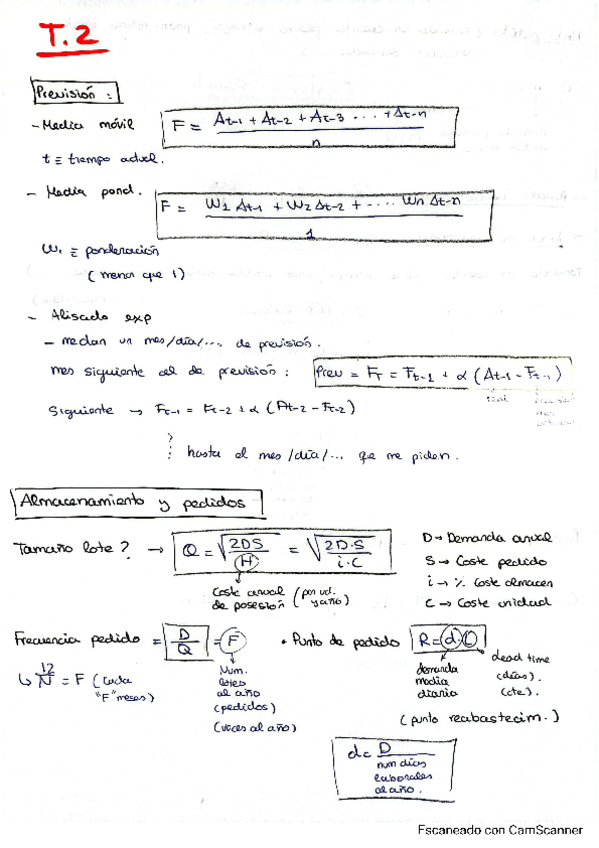 T.2
Previsión:
- Media móvil F = At-1 + At-2 + At-3 ... + At-n / n
t ≡ tiempo actual.
- Media pond. F = W1 At-1 + W2 At-2 + .... Wn At-n / 1
W1 ≡ ponderación
(menor que 1)
- Alisado exp
- me dan un mes/día/... de previsión.
mes siguiente al de previsión: Prev = FT = Ft-1 + α (At-1 - Ft-1)
real
Siguiente → Ft-1 = Ft-2 + α (At-2 - Ft-2)
hasta el mes/día/... que me piden.
Almacenamiento y pedidos
Tamaño lote? → Q = √2DS/H = √2D·S/i·C
D → Demanda anual
S → Coste pedido
i → % Coste almacen
C → Coste unidad
Coste anual de posesión (por ud. y año)
Frecuencia pedido = D/Q = F
Num. lotes al año (pedidos) (veces al año)
↳ 12/N = F (cada "F" meses)
• Punto de pedido R = d·L
demanda media diaria
lead time (días). (cte).
(punto reabastecim.)
d = D / num días laborales al año.
Escaneado con CamScanner